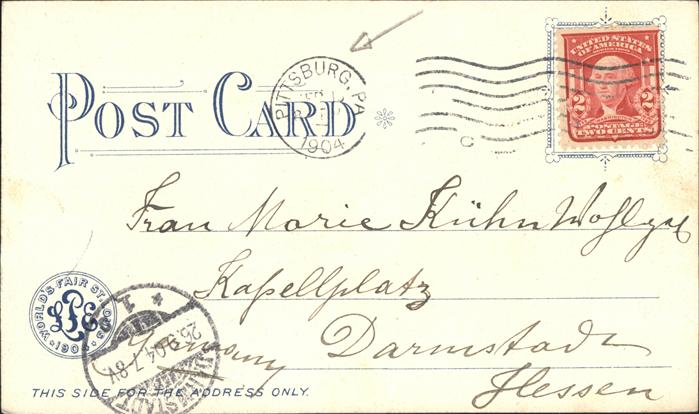 POST CARD
PITTSBURG, PA.
1904
UNITED STATES
OF AMERICA
2 2
POSTAGE
TWO CENTS
Frau Marie Kühn Wohlgeb
Kapellplatz
Germany Darmstadt
Hessen
WORLD'S FAIR ST. LOUIS
LPE
1904
1
DARMSTADT
THIS SIDE FOR THE ADDRESS ONLY.